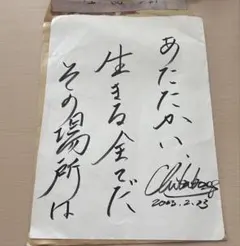 あたたかい、
生きる全てだ
その場所は
2003.2.23